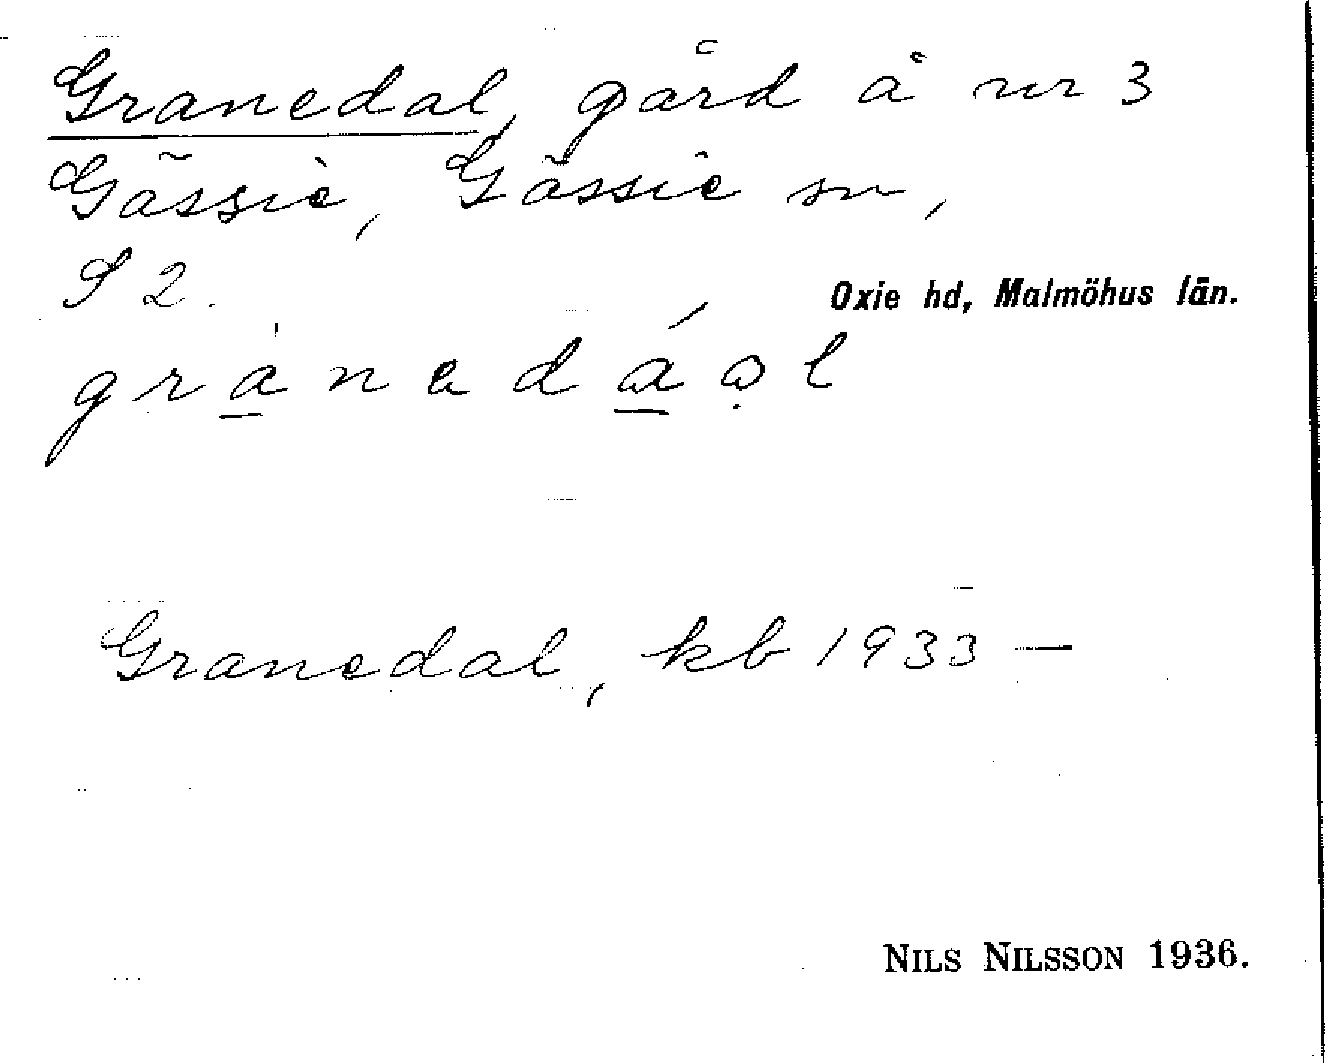 Granedal, gård å nr 3
Gässie, Gässie sn,
S 2.
Oxie hd, Malmöhus län.
grànedáol
Granedal, kb 1933 —
NILS NILSSON 1936.